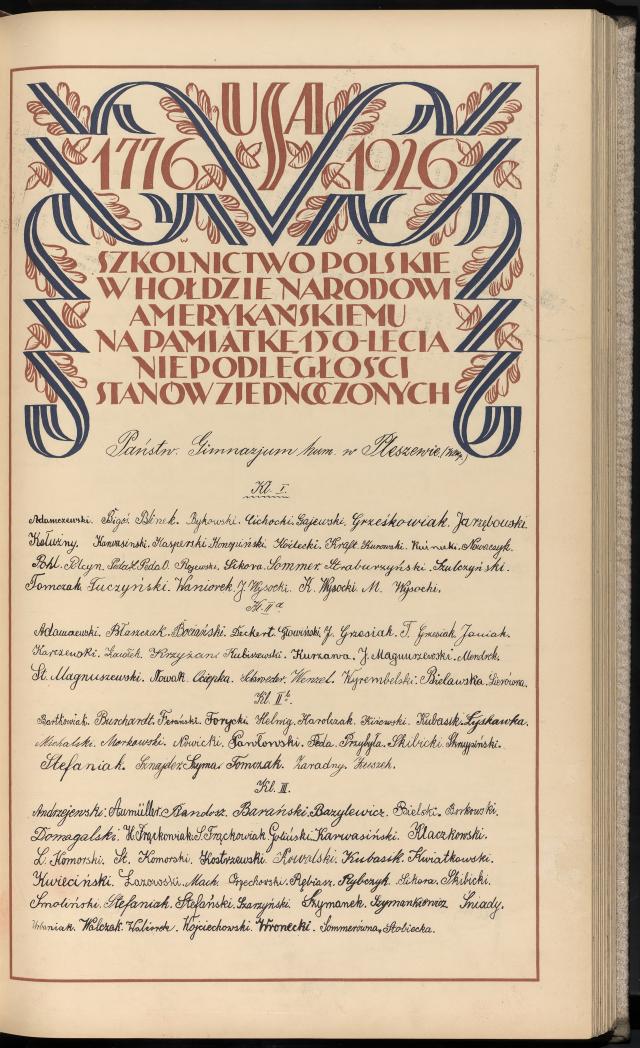 USA
1776 1926
SZKOLNICTWO POLSKIE
W HOŁDZIE NARODOWI
AMERYKAŃSKIEMU
NA PAMIATKĘ 150-LECIA
NIEPODLEGŁOSCI
STANÓW ZJEDNOCZONYCH
Państw. Gimnazjum hum. w Pleszewie
Kl. I.
Adamczewski. Bigoś. Binek. Bykowski. Cichocki. Gajewski. Grześkowiak. Jarzębowski.
Kałużny. Karwasiński. Kasperski. Konopiński. Kraft. Kurowski. Nowaczyk.
Pohl. Rojewski. Sikora. Sommer. Straburzyński. Szulczyński.
Tomczak. Tuczyński. Waniorek. J. Wysocki. K. Wysocki. M. Wysocki.
Kl. II a
Adamczewski. Błaszczak. Deckert. J. Grzesiak. T. Grzesiak. Janiak.
Karczewski. Krzyżan. Kubiszewski. Kurzawa. J. Magnuszewski. Mendrek.
St. Magnuszewski. Nowak. Ociepka. Schroeder. Wenzel. Wyrembelski. Bielawska.
Kl. II b.
Bartkowiak. Burchardt. Forycki. Helwig. Karolczak. Kubasik. Łyskawka.
Michalski. Morkowski. Nowicki. Pawłowski. Peda. Przybyła. Skibicki. Skrzypiński.
Stefaniak. Sznajder. Szyma. Tomczak. Zaradny.
Kl. III.
Andrzejewski. Aumüller. Blandosz. Barański. Bazylewicz. Bielski. Borkowski.
Domagalski. W. Frąckowiak. S. Frąckowiak. Goliński. Karwasiński. Klaczkowski.
L. Komorski. St. Komorski. Kostrzewski. Kowalski. Kubasik. Kwiatkowski.
Kwieciński. Lazowski. Mach. Orzechowski. Rębiasz. Rybczyk. Sikora. Skibicki.
Smoliński. Stefaniak. Stefański. Szarzyński. Szymanek. Szymankiewicz. Śniady.
Urbaniak. Walczak. Wojciechowski. Wronecki. Sommerówna. Stobiecka.